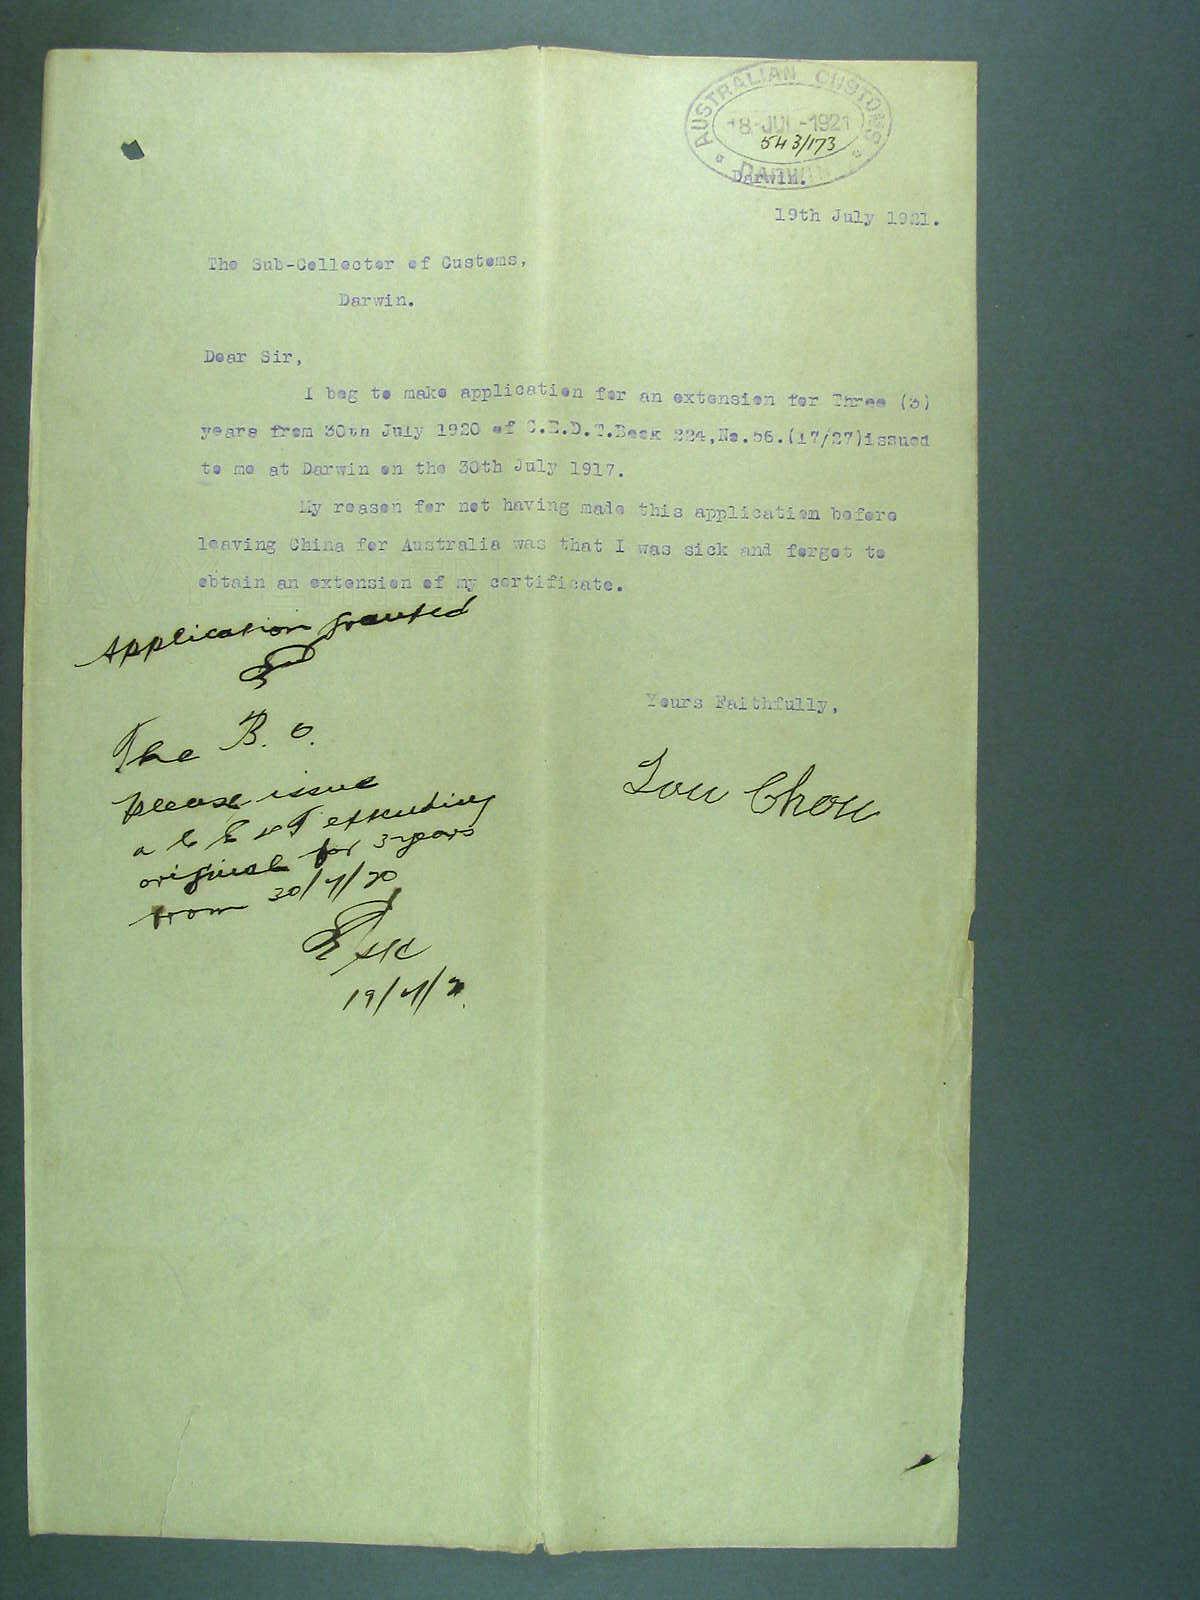 AUSTRALIAN CUSTOMS
18-JUL-1921
543/173
DARWIN
Darwin.
19th July 1921.
The Sub-Collector of Customs,
Darwin.
Dear Sir,
I beg to make application for an extension for Three (3)
years from 30th July 1920 of C.E.D.T.Book 224,No.56.(17/27)issued
to me at Darwin on the 30th July 1917.
My reason for not having made this application before
leaving China for Australia was that I was sick and forgot to
obtain an extension of my certificate.
Application granted
Yours Faithfully,
Lou Chou
The B. O.
please issue
a C E D T extending
original for 3 years
from 30/7/20
19/7/21